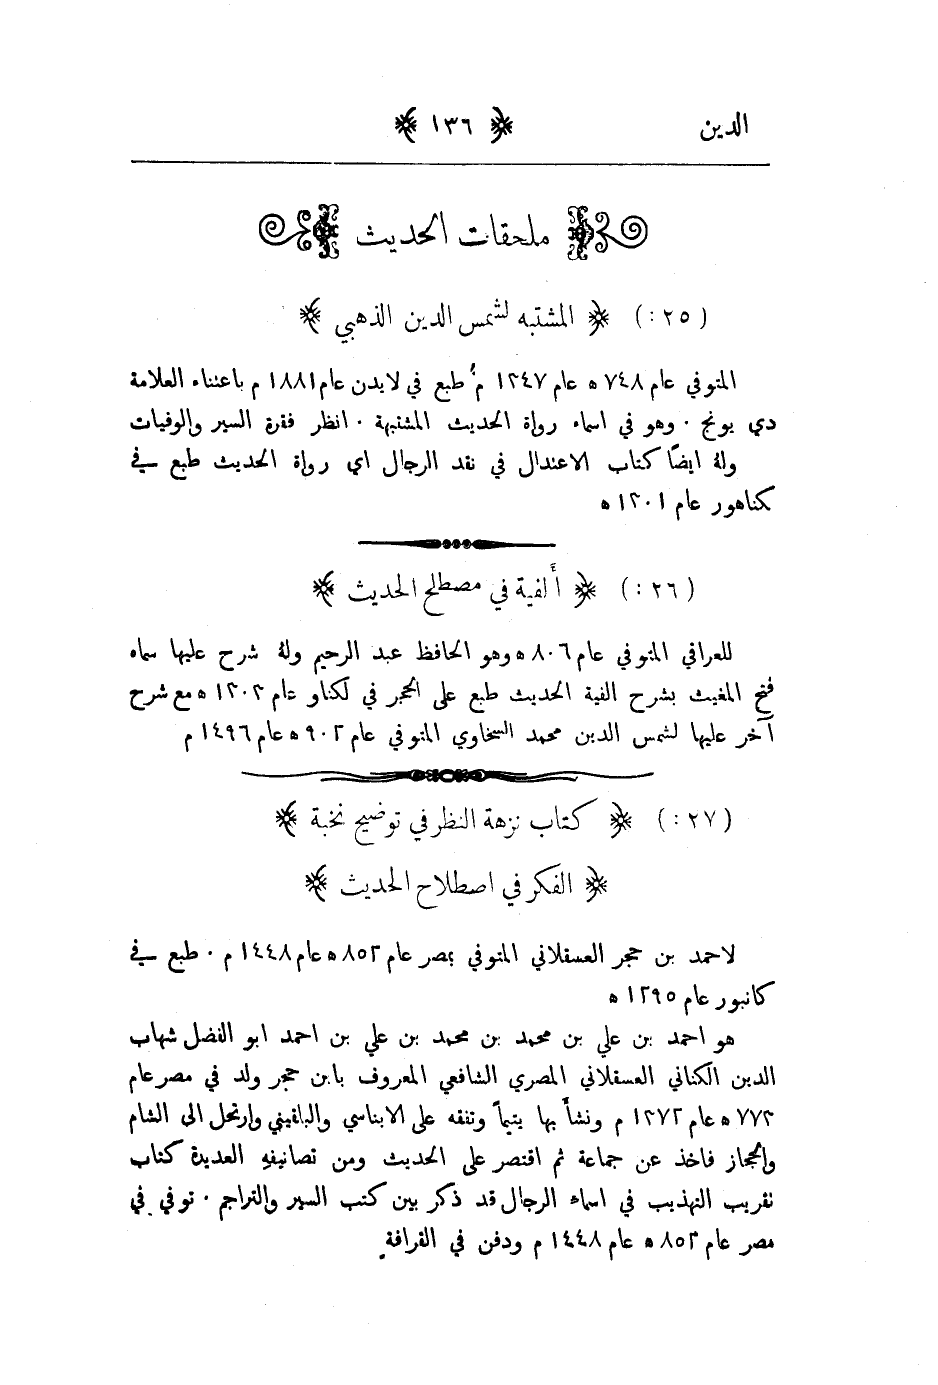 الدين ﴿ ١٣٦ ﴾
ملحقات الحديث
(٢٥:) ﴿ المشتبه لشمس الدين الذهبي ﴾
المتوفي عام ٧٤٨ ه عام ١٣٤٧ م طبع في لايدن عام ١٨٨١ م باعتناء العلامة
دي يونج ٠ وهو في اسماء رواة الحديث المشتبهة ٠ انظر فقرة السير والوفيات
وله ايضاً كتاب الاعتدال في نقد الرجال اي رواة الحديث طبع في
كناهور عام ١٣٠١ ه
(٢٦:) ﴿ ألفية في مصطلح الحديث ﴾
للعراقي المتوفي عام ٨٠٦ ه وهو الحافظ عبد الرحيم وله شرح عليها سماه
فتح المغيث بشرح الفية الحديث طبع على الحجر في لكناو عام ١٣٠٣ ه مع شرح
آخر عليها لشمس الدين محمد السخاوي المتوفي عام ٩٠٢ ه عام ١٤٩٦ م
(٢٧:) ﴿ كتاب نزهة النظر في توضيح نخبة ﴾
﴿ الفكر في اصطلاح الحديث ﴾
لاحمد بن حجر العسقلاني المتوفي بمصر عام ٨٥٢ ه عام ١٤٤٨ م ٠ طبع في
كانبور عام ١٢٩٥ ه
هو احمد بن علي بن محمد بن محمد بن علي بن احمد ابو الفضل شهاب
الدين الكناني العسقلاني المصري الشافعي المعروف بابن حجر ولد في مصر عام
٧٧٣ ه عام ١٣٧٢ م ونشأ بها يتيماً وتفقه على الابناسي والبلقيني وارتحل الى الشام
والحجاز فاخذ عن جماعة ثم اقتصر على الحديث ومن تصانيفه العديدة كتاب
تقريب التهذيب في اسماء الرجال قد ذكر بين كتب السير والتراجم ٠ توفي في
مصر عام ٨٥٢ ه عام ١٤٤٨ م ودفن في القرافة